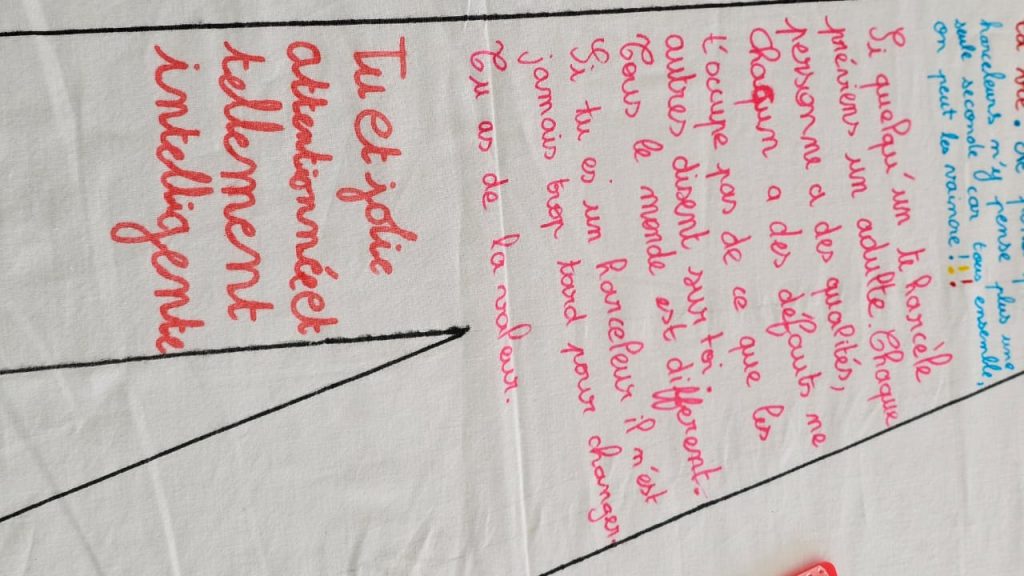 la vie. Ne
plus une
harceleurs n'y pense
seule seconde car tous ensemble,
on peut les vaincre !!!
Si quelqu'un te harcèle
préviens un adulte. Chaque
personne a des qualités,
Chaqun a des défauts ne
t'occupe pas de ce que les
autres disent sur toi ;
Tous le monde est différent.
Si tu es un harceleur il n'est
jamais trop tard pour changer.
Tu as de la valeur.
Tu et jolie
attentionnéeet
tellement
intelligente